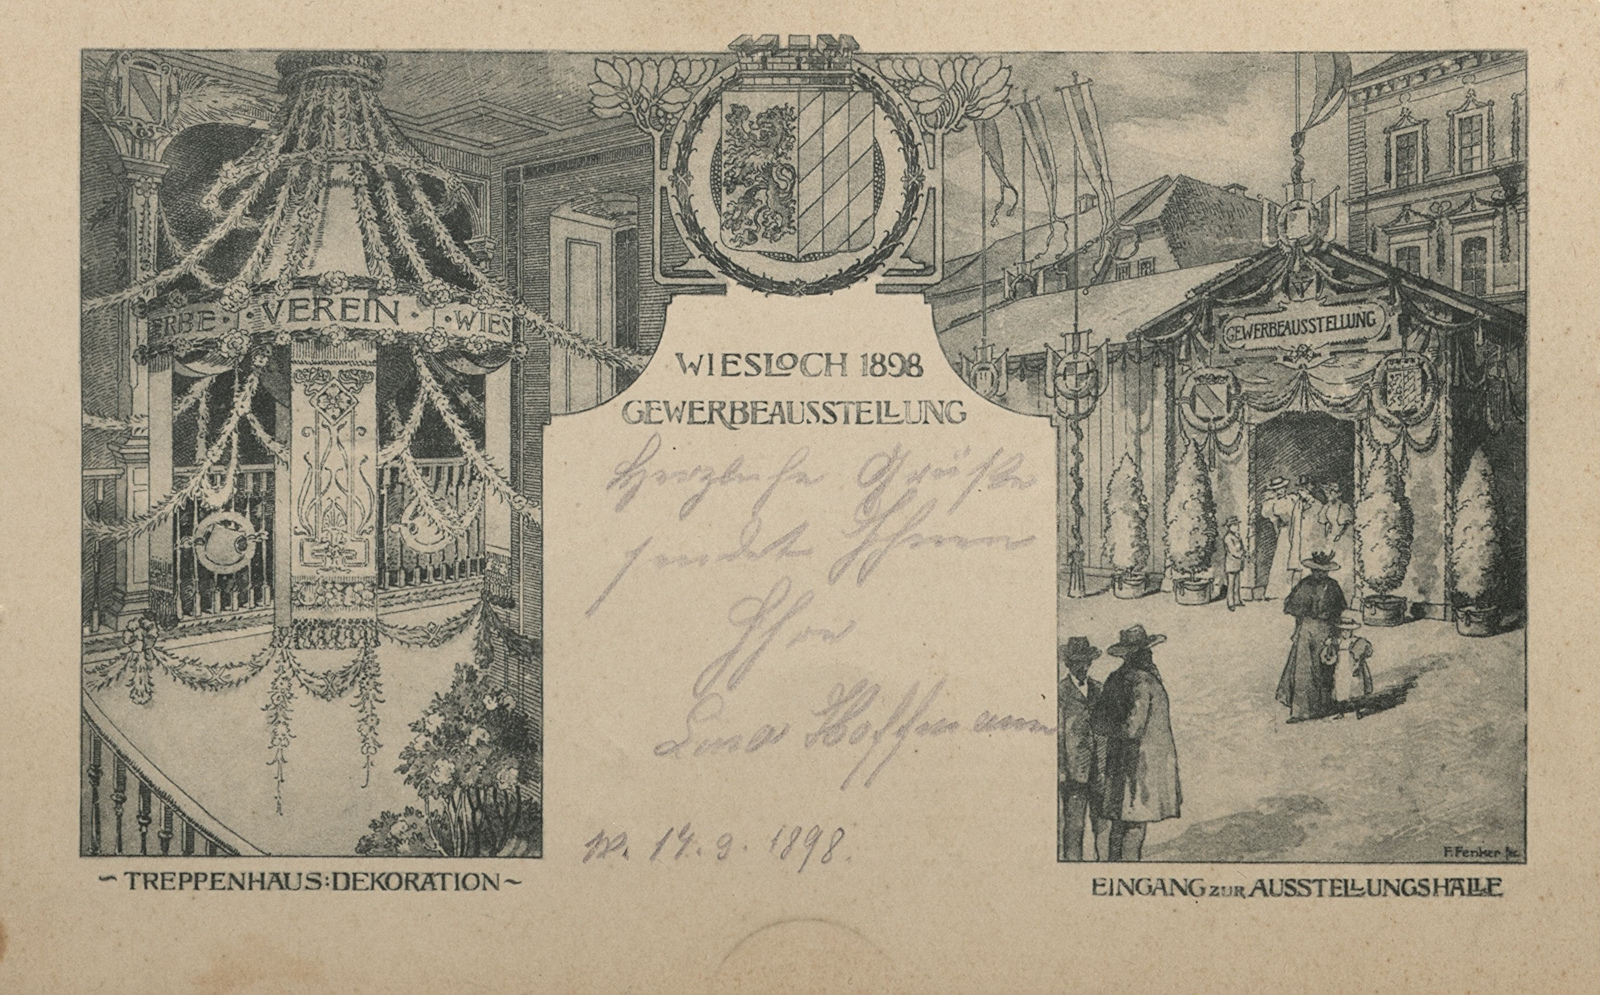 RBE · VEREIN · WIES
GEWERBEAUSSTELLUNG
WIESLOCH 1898
GEWERBEAUSSTELLUNG
Herzliche Grüße
sendet Ihnen
Ihre
Lina Hoffmann
W. 14. 9. 1898.
F. Fenker
~ TREPPENHAUS:DEKORATION ~
EINGANG ZUR AUSSTELLUNGSHALLE